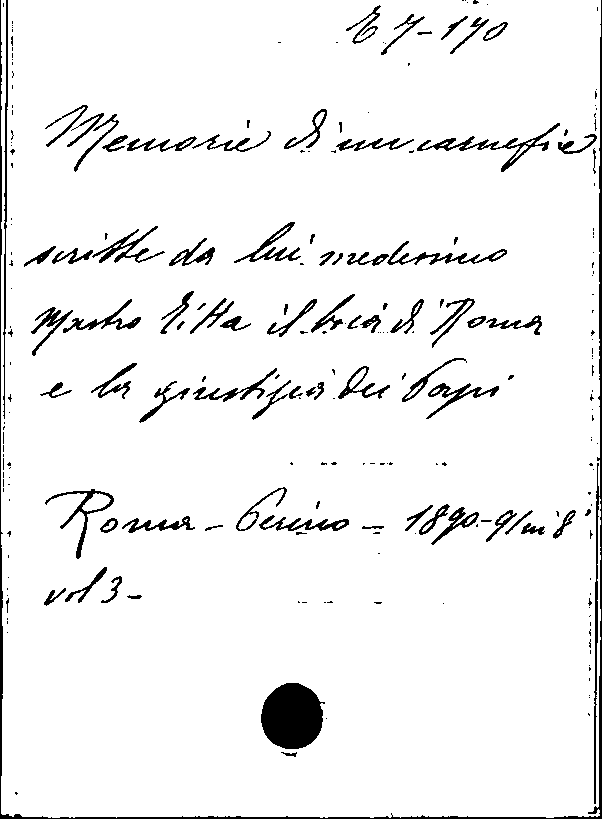 E 7-170
Memorie di un carnefice
scritte da lui medesimo
Mastro Titta il boia di Roma
e la giustizia dei Papi
Roma - Perino - 1890-91 in 8°
vol 3-